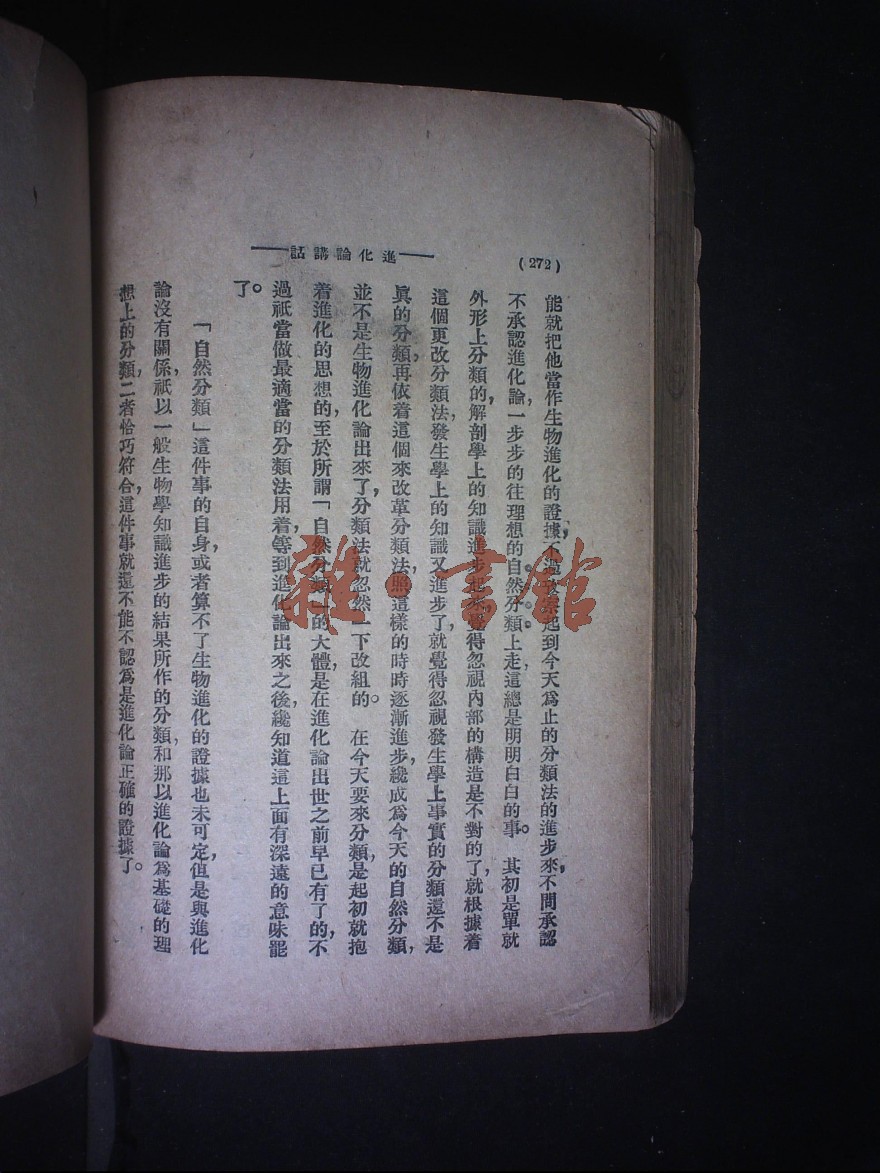 (272)
進化論講話
能就把他當作生物進化的證據,不過放察起到今天爲止的分類法的進步來,不問承認
不承認進化論,一步步的往理想的自然分類上走,這總是明明白白的事。 其初是單就
外形上分類的,解剖學上的知識進步起來,覺得忽視內部的構造是不對的了,就根據着
這個更改分類法,發生學上的知識又進步了,就覺得忽視發生學上事實的分類還不是
眞的分類,再依着這個來改革分類法,照這樣的時時逐漸進步,纔成爲今天的自然分類,
並不是生物進化論出來了,分類法就忽然一下改組的。 在今天要來分類,是起初就抱
着進化的思想的,至於所謂「自然分類」的大體,是在進化論出世之前早已有了的,不
過祇當做最適當的分類法用着,等到進化論出來之後,纔知道這上面有深遠的意味罷
了。
「自然分類」這件事的自身,或者算不了生物進化的證據也未可定,但是與進化
論沒有關係,祇以一般生物學知識進步的結果所作的分類,和那以進化論爲基礎的理
想上的分類,二者恰巧符合,這件事就還不能不認爲是進化論正確的證據了。
雜·書館